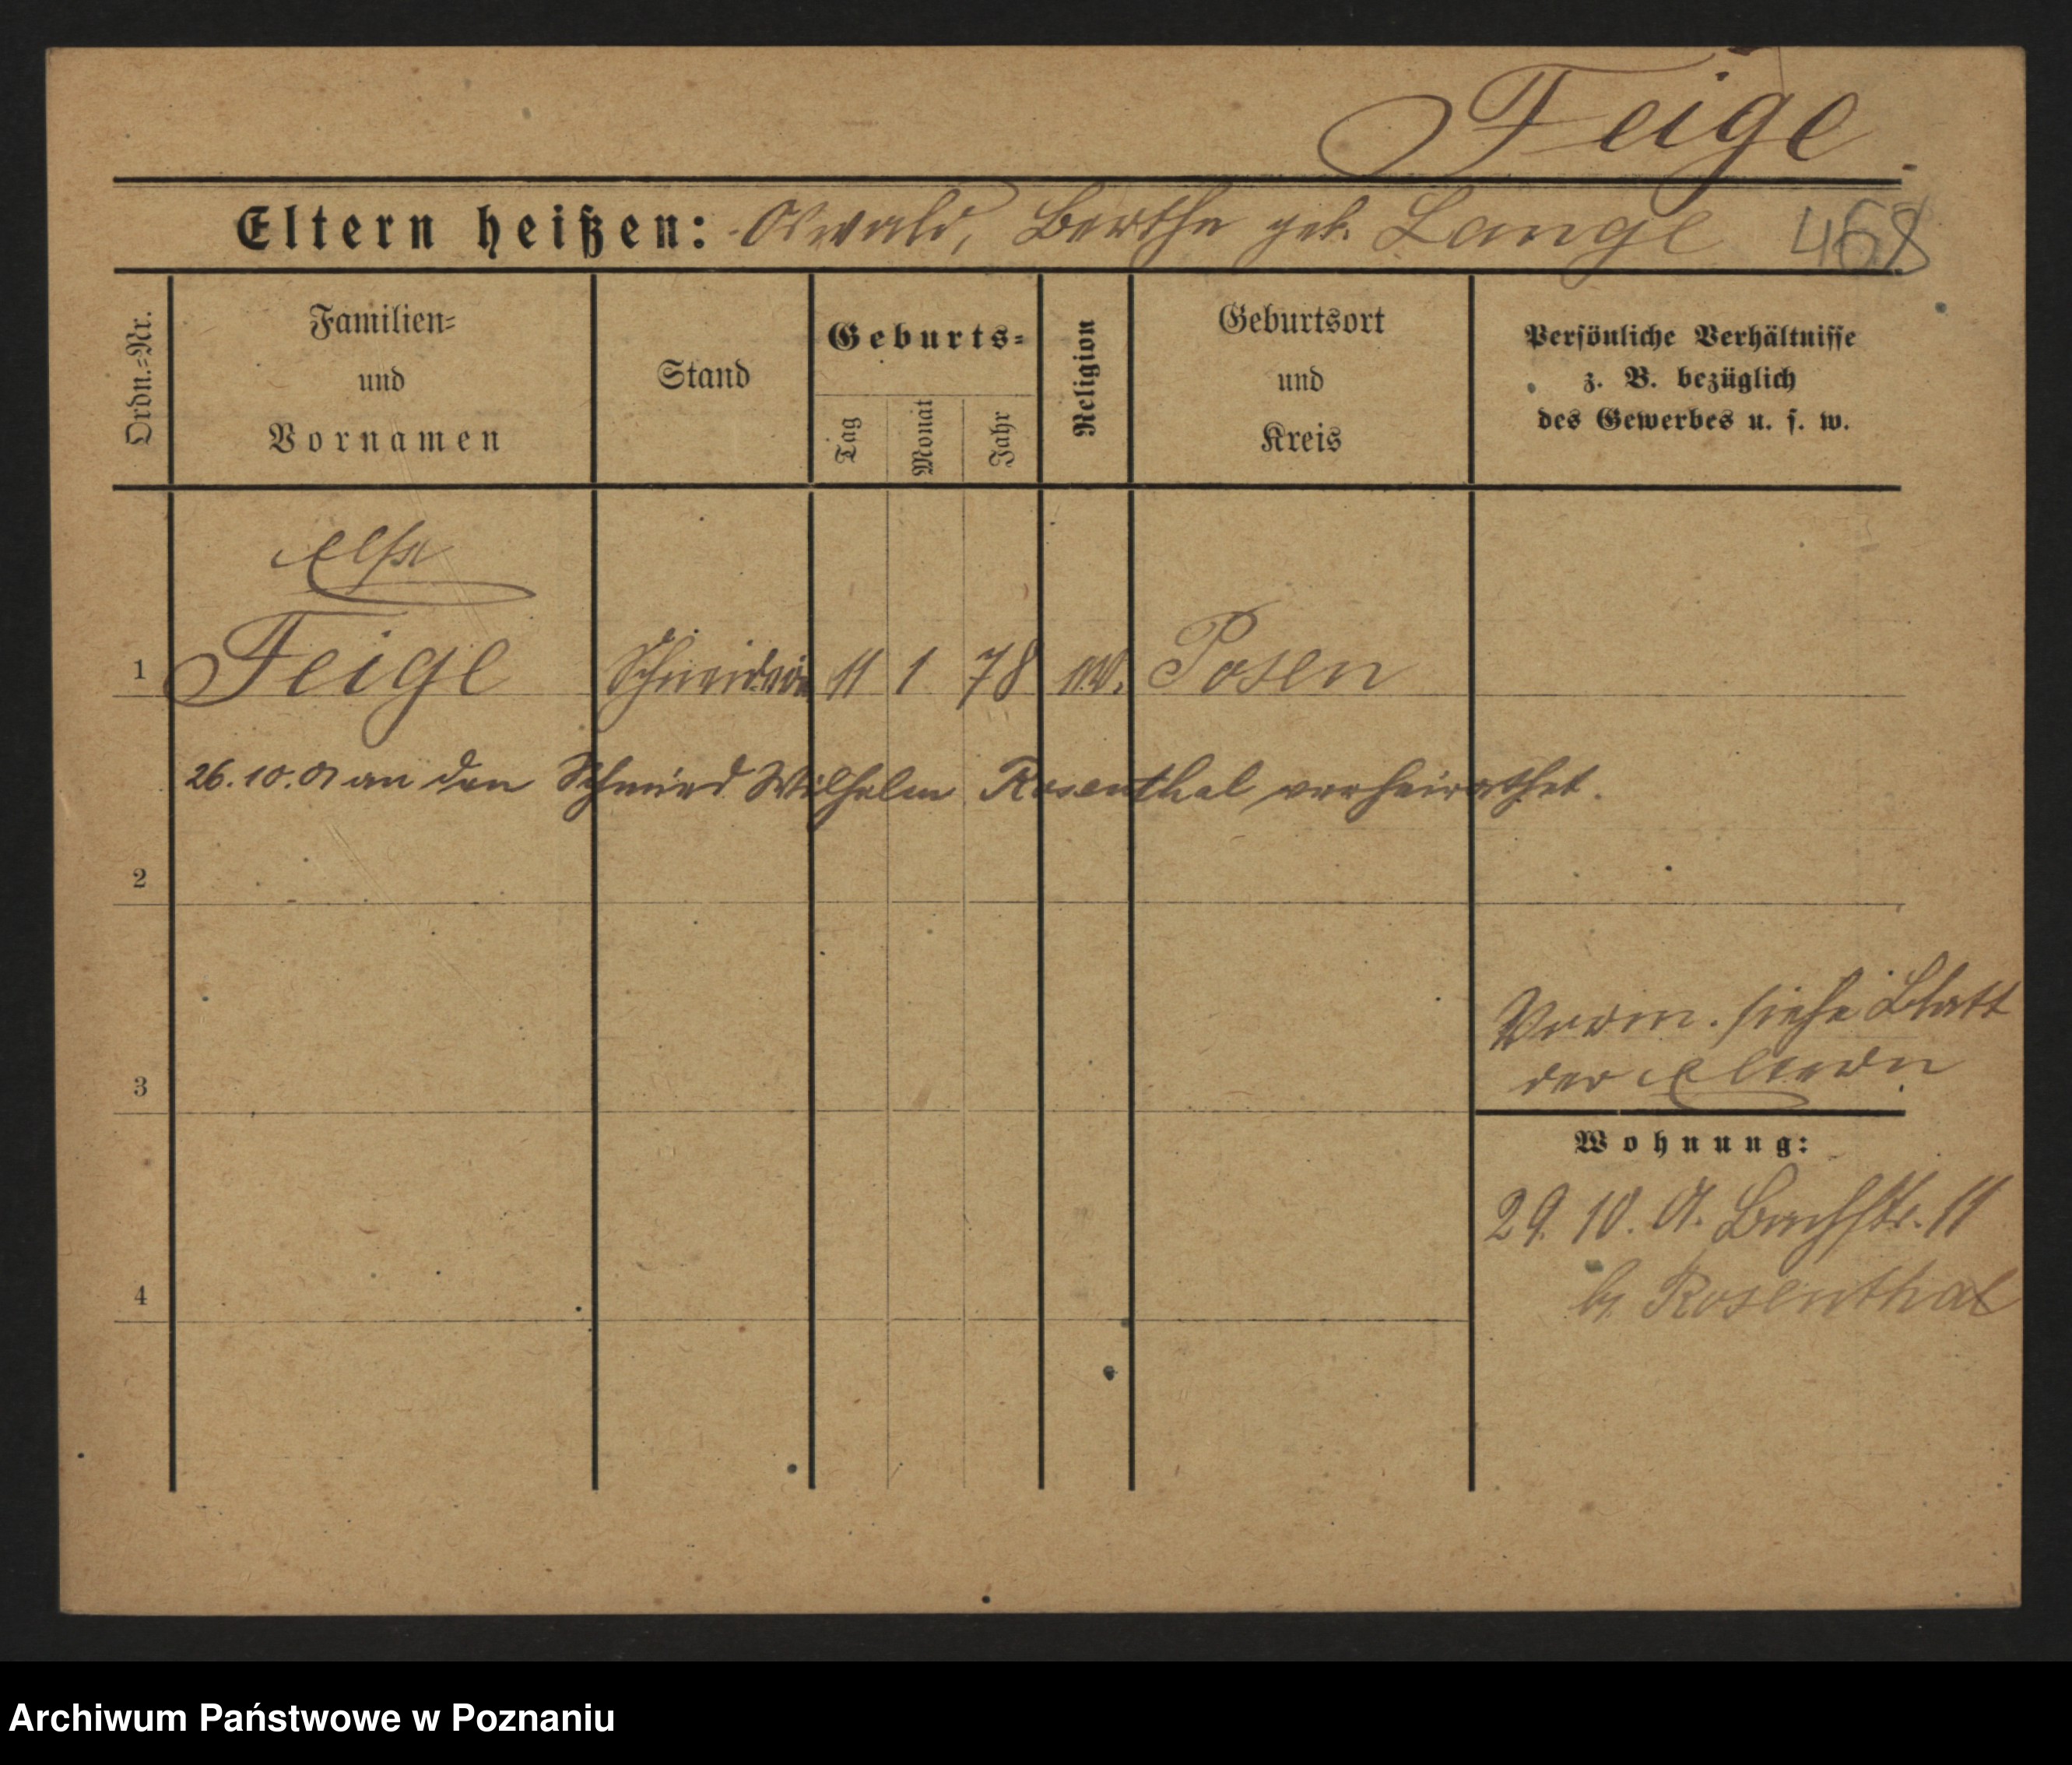 Feige
Eltern heißen: Oswald, Berthe geb. Lange 468
Ordn.=Nr.
Familien=
und
Vornamen
Stand
Geburts=
Tag
Monat
Jahr
Religion
Geburtsort
und
Kreis
Persönliche Verhältnisse
z. B. bezüglich
des Gewerbes u. s. w.
Else
1 Feige Schneiderin 11 1 78 ev. Posen
26. 10. 01 an den Schmied Wilhelm Rosenthal verheirathet.
2
siehe Blatt
der Eltern
3
Wohnung:
29. 10. 01. Bachstr. 11
b. Rosenthal
4
Archiwum Państwowe w Poznaniu